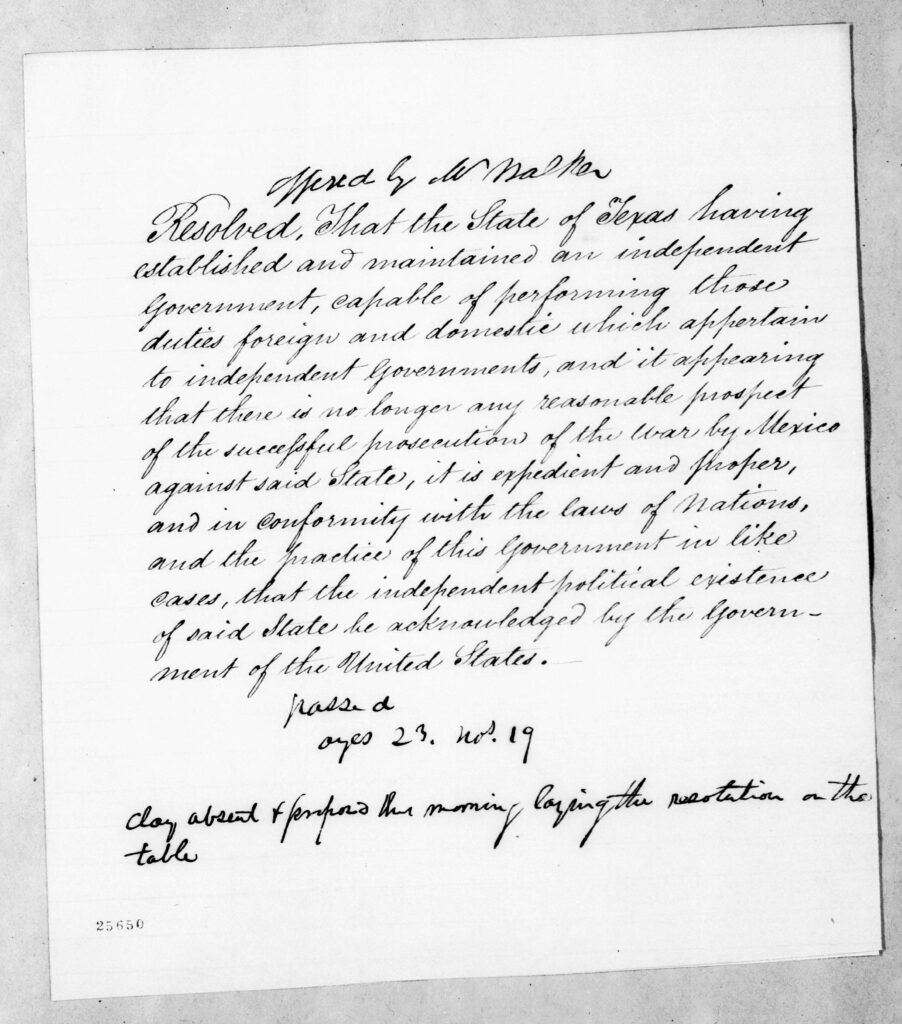 offered by Mr Walker
Resolved, That the State of Texas having
established and maintained an independent
Government, capable of performing those
duties foreign and domestic which appertain
to independent Governments, and it appearing
that there is no longer any reasonable prospect
of the successful prosecution of the war by Mexico
against said State, it is expedient and proper,
and in conformity with the laws of Nations,
and the practice of this Government in like
cases, that the independent political existence
of said State be acknowledged by the Govern-
ment of the United States.
passed
ayes 23. Nos. 19
clay absent & this morning laying the resolution on the
table
25650